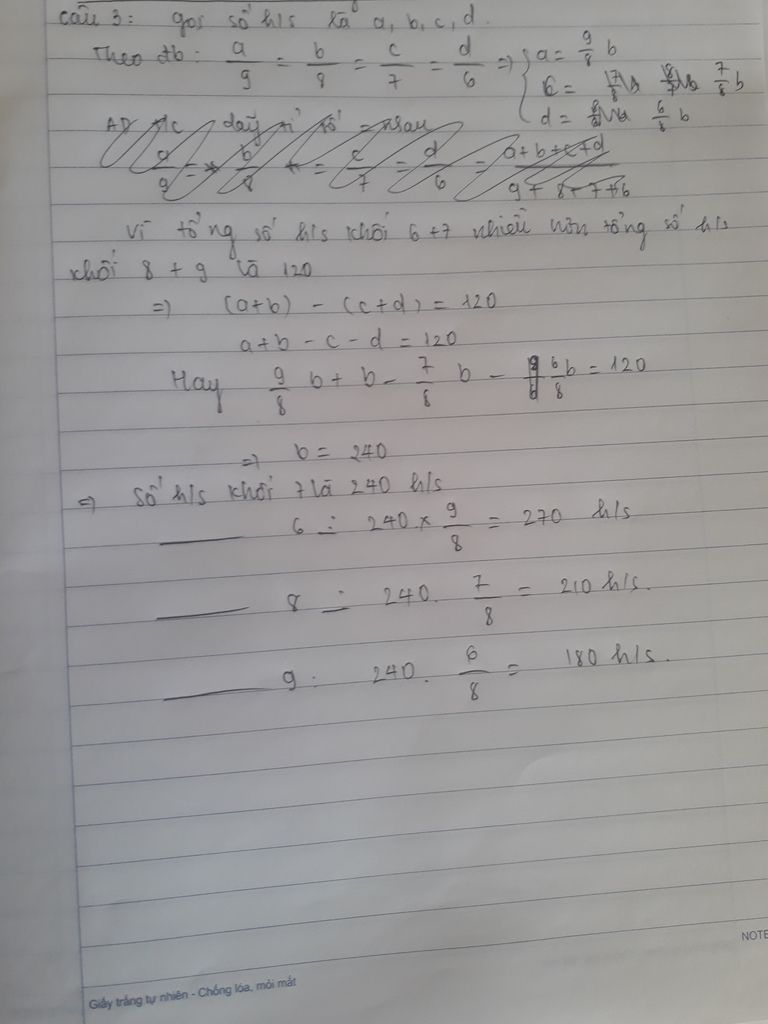 Câu 3: gọi số h/s là a, b, c, d.
Theo đb: a/9 = b/8 = c/7 = d/6 => { a = 9/8 b
c = 7/8 b
d = 6/8 b
AD t/c dãy tỉ số = nhau
a/9 = b/8 = c/7 = d/6 = a+b+c+d / 9+8+7+6
Vì tổng số h/s khối 6+7 nhiều hơn tổng số h/s
khối 8 + 9 là 120
=> (a+b) - (c+d) = 120
a+b-c-d = 120
Hay 9/8 b + b - 7/8 b - 6/8 b = 120
=> b = 240
=> Số h/s khối 7 là 240 h/s
6 : 240 × 9/8 = 270 h/s
8 : 240. 7/8 = 210 h/s.
9 : 240. 6/8 = 180 h/s.
NOTE
Giấy trắng tự nhiên - Chống lóa, mỏi mắt